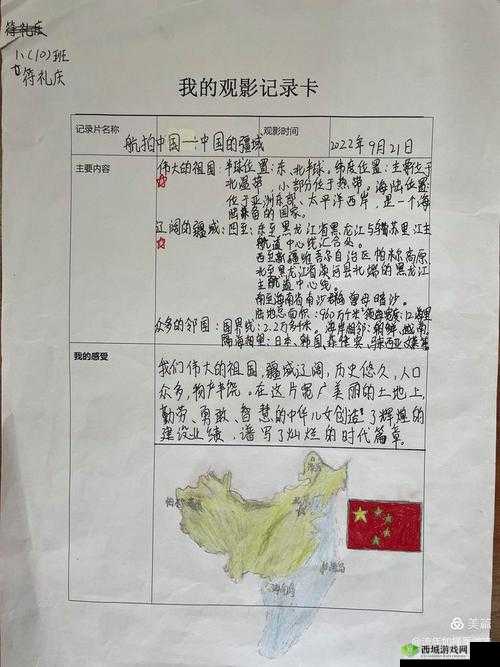 待礼庆
八(10)班
待礼庆
我的观影记录卡
记录片名称
航拍中国一:中国的疆域
观影时间
2022年9月21日
主要内容
伟大的祖国:半球位置:东、北半球。纬度位置:主要位于
北温带,小部分位于热带。海陆位置:
位于亚洲东部、太平洋西岸,是一个海
陆兼备的国家。
辽阔的疆域:四至:东至黑龙江省黑龙江与乌苏里江主
航道中心线汇合处。
西至新疆维吾子自治区帕米尔高原
北至黑龙江省漠河县北端的黑龙江
主航道中心线。
南至海南省南沙群岛曾母暗沙。
陆地总面积:960万千米
众多的邻国:国界线:2.2万多千米。海岸相邻:朝鲜、越南
隔海相望:日本、韩国、菲律宾、
我的感受
我们伟大的祖国,疆域辽阔,历史悠久,人口
众多,物产丰饶。在这片宽广美丽的土地上,
勤劳、勇敢、智慧的中华儿女创造了辉煌的
建设业绩,谱写了灿烂的时代篇章。
美篇
西域游戏网